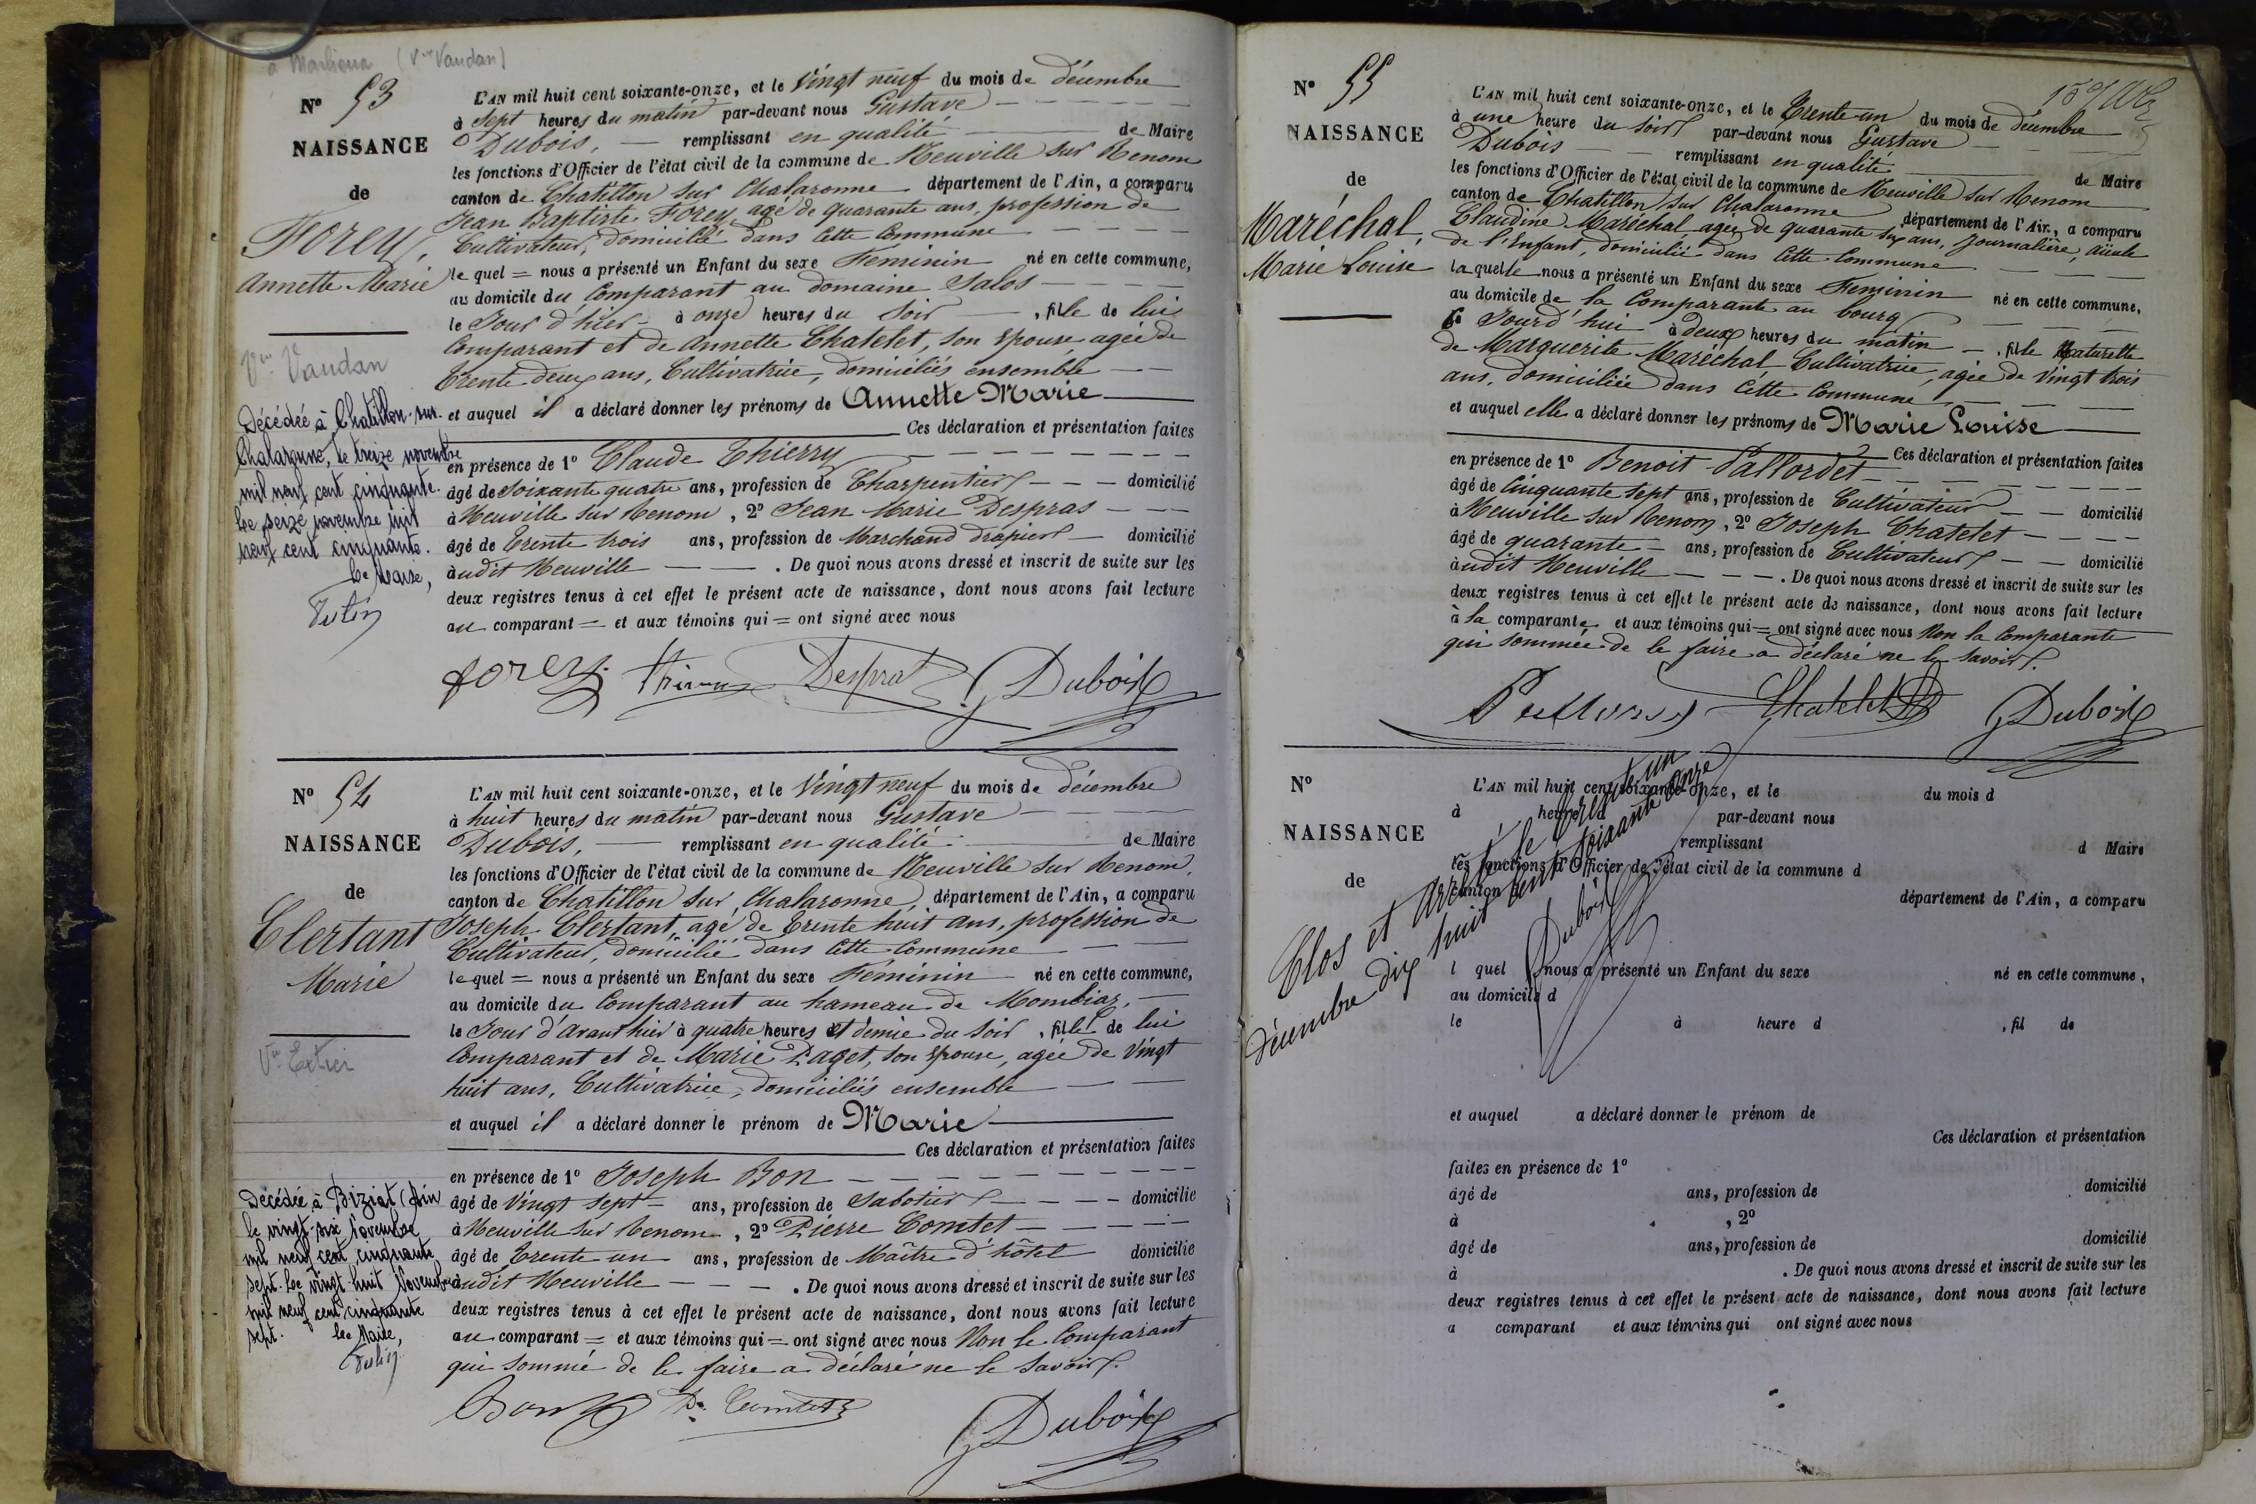 à Marlieux (Vve Vaudan)
N° 53
NAISSANCE
de
Forey,
Annette Marie
Vve Vaudan
Décédée à Chatillon-sur-
Chalaronne, le treize novembre
mil neuf cent cinquante.
Le seize novembre mil
neuf cent cinquante.
Le Maire,
L'AN mil huit cent soixante-onze, et le Vingt neuf du mois de décembre
à Sept heures du matin par-devant nous Gustave
Dubois, remplissant en qualité de Maire
les fonctions d'Officier de l'état civil de la commune de Neuville sur Renom
canton de Chatillon sur Chalaronne département de l'Ain, a comparu
Jean Baptiste Forey, agé de quarante ans, profession de
Cultivateur, domicilié dans cette Commune
le quel = nous a présenté un Enfant du sexe Féminin né en cette commune,
au domicile du Comparant au domaine Salos
le Jour d'hier à onze heures du Soir , fille de lui
Comparant et de Annette Chatelet, son épouse, agée de
trente deux ans, Cultivatrice, domiciliés ensemble
et auquel il a déclaré donner les prénoms de Annette Marie
Ces déclaration et présentation faites
en présence de 1° Claude Thierry
âgé de Soixante quatre ans, profession de Charpentier domicilié
à Neuville sur Renom, 2° Jean Marie Despras
âgé de trente trois ans, profession de Marchand drapier domicilié
àudit Neuville . De quoi nous avons dressé et inscrit de suite sur les
deux registres tenus à cet effet le présent acte de naissance, dont nous avons fait lecture
au comparant = et aux témoins qui = ont signé avec nous
forey Thierry Despras G Dubois
N° 54
NAISSANCE
de
Clertant
Marie
Vve
Décédée à Biziat (Ain
le vingt-six Novembre
mil neuf cent cinquante
sept. Le vingt huit Novembre
mil neuf cent cinquante
sept.
Le Maire,
L'AN mil huit cent soixante-onze, et le Vingt neuf du mois de décembre
à huit heures du matin par-devant nous Gustave
Dubois, remplissant en qualité de Maire
les fonctions d'Officier de l'état civil de la commune de Neuville sur Renom,
canton de Chatillon sur Chalaronne, département de l'Ain, a comparu
Joseph Clertant, agé de trente huit ans, profession de
Cultivateur, domicilié dans cette Commune
le quel = nous a présenté un Enfant du sexe Féminin né en cette commune,
au domicile du Comparant au hameau de Mombiar,
le Jour d'avant hier à quatre heures et demie du Soir , fille de lui
Comparant et de Marie Paget, son épouse, agée de Vingt
huit ans, Cultivatrice, domiciliés ensemble
et auquel il a déclaré donner le prénom de Marie
Ces déclaration et présentation faites
en présence de 1° Joseph Bon
âgé de Vingt sept ans, profession de Sabotier domicilié
à Neuville sur Renom, 2° Pierre Comtet
âgé de trente un ans, profession de Maître d'hôtel domicilié
àudit Neuville . De quoi nous avons dressé et inscrit de suite sur les
deux registres tenus à cet effet le présent acte de naissance, dont nous avons fait lecture
au comparant = et aux témoins qui = ont signé avec nous Non le Comparant
qui sommé de le faire a déclaré ne le Savoir.
Bon P. Comtet
G Dubois
N° 55
NAISSANCE
de
Maréchal,
Marie Louise
L'AN mil huit cent soixante-onze, et le Trente-un du mois de décembre
à une heure du soir par-devant nous Gustave
Dubois remplissant en qualité de Maire
les fonctions d'Officier de l'état civil de la commune de Neuville sur Renom
canton de Chatillon sur Chalaronne département de l'Ain, a comparu
Claudine Maréchal agée de quarante six ans, Journalière, aïeule
de l'Enfant, domiciliée dans cette Commune
la quelle nous a présenté un Enfant du sexe Féminin né en cette commune,
au domicile de la Comparante au bourg
Ce Jourd'hui à deux heures du matin , fille Naturelle
de Marguerite Maréchal, Cultivatrice, agée de Vingt trois
ans, domiciliée dans cette Commune
et auquel elle a déclaré donner les prénoms de Marie Louise
Ces déclaration et présentation faites
en présence de 1° Benoit
âgé de Cinquante sept ans, profession de Cultivateur domicilié
à Neuville sur Renom, 2° Joseph Chatelet
âgé de quarante ans, profession de Cultivateur domicilié
àudit Neuville . De quoi nous avons dressé et inscrit de suite sur les
deux registres tenus à cet effet le présent acte de naissance, dont nous avons fait lecture
à la comparante et aux témoins qui = ont signé avec nous Non la Comparante
qui sommée de le faire a déclaré ne le Savoir.
Chatelet G Dubois
N°
NAISSANCE
de
Clos et arrêté le trente un
décembre dix huit cent soixante onze
Dubois
L'AN mil huit cent soixante-onze, et le du mois d
à heure par-devant nous
remplissant d Maire
les fonctions d'Officier de l'état civil de la commune d
canton d
département de l'Ain, a comparu
l quel nous a présenté un Enfant du sexe né en cette commune,
au domicile d
le à heure d , fil de
et auquel a déclaré donner le prénom de
Ces déclaration et présentation
faites en présence de 1°
âgé de ans, profession de domicilié
à , 2°
âgé de ans, profession de domicilié
à . De quoi nous avons dressé et inscrit de suite sur les
deux registres tenus à cet effet le présent acte de naissance, dont nous avons fait lecture
a comparant et aux témoins qui ont signé avec nous